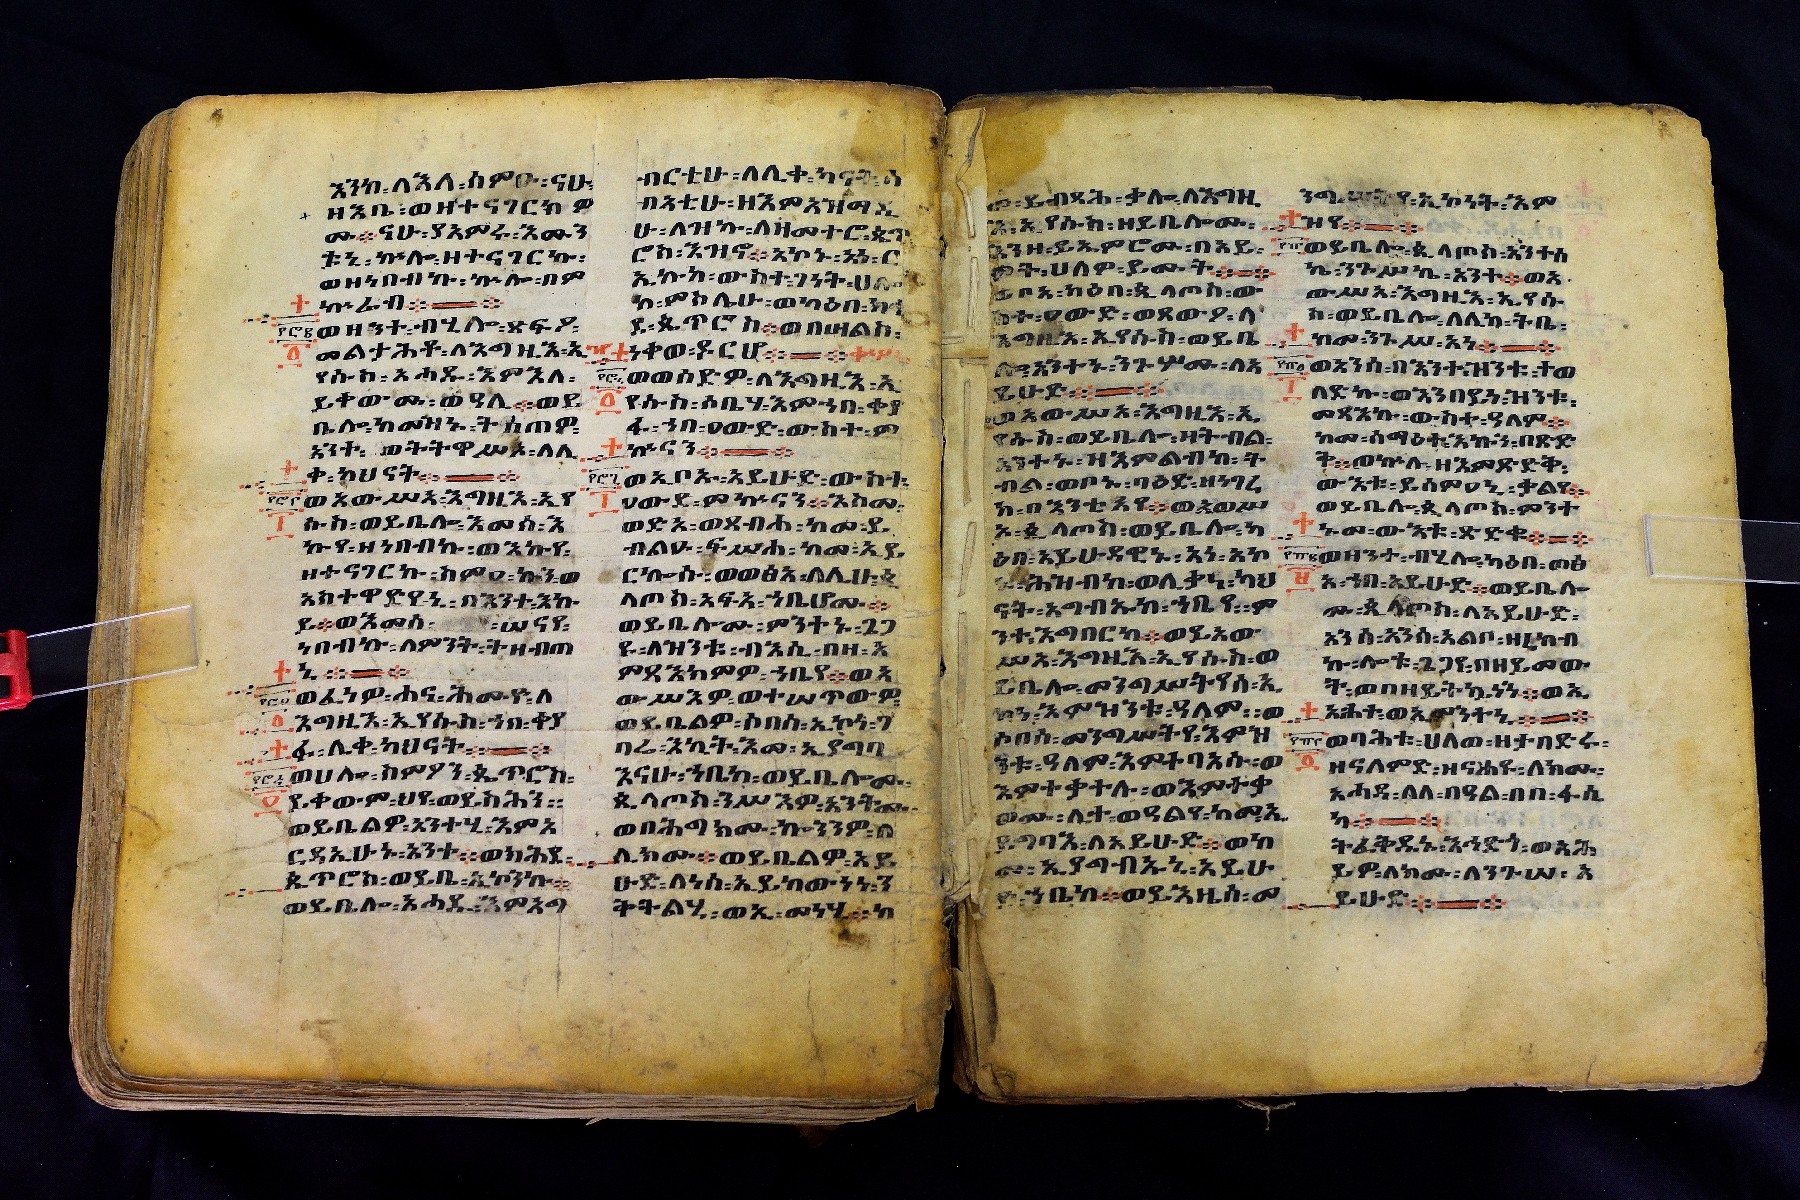 እንከ፡ለእለ፡ሰምዑ፡ናሁ፡
ዘእቤ፡ወዘተናገርክዎ
ሙ፡ናሁ፡ያአምሩ፡እሙን
ቱኒ፡ኵሎ፡ዘተናገርኩ፡
ወዘነበብኩ፡ኵሎ፡በም
ኵራብ፨
፻፸፪ ወዘንተ፡ብሂሎ፡ጸፍዖ፡
መልታሕቶ፡ለእግዚእ፡ኢ
የሱስ፡አሐዱ፡እምእለ፡
ይቀውሙ፡ወዓሊ፨ወይ
ቤሎ፡ከመዝኑ፡ትሰጠዎ፡
አንተ፡ወትትዋሥኦ፡ለሊ
ቀ፡ካህናት፨
ወአውሥአ፡እግዚእ፡ኢየ
ሱስ፡ወይቤሎ፡እመሰ፡እ
ኩየ፡ዘነበብኩ፡ወእኩየ፡
ዘተናገርኩ፡ስምዐ፡ኩን፡ወ
አስተዋድየኒ፡በእንተ፡እኩ
ይ፨ወእመሰ፡ ፡ሠናየ፡
ነበብኩ፡ለምንት፡ትዘብጠ
ኒ፨
ወፈነዎ፡ሐና፡ሕሙየ፡ለ
እግዚእ፡ኢየሱስ፡ኀበ፡ቀያ
ፋ፡ሊቀ፡ካህናት፨
ወሀሎ፡ስምዖን፡ጴጥሮስ፡
ይቀውም፡ህየ፡ወይስሕን፡
ወይቤልዎ፡አንተሂ፡እምአ
ርዳኢሁኑ፡አንተ፨ወክሕደ፡
ጴጥሮስ፡ወይቤ፡ኢኮንኩ፨
ወይቤሎ፡አሐዱ፡እምአግ
ብርቲሁ፡ለሊቀ፡ካናት፡ሰ
ብኣቲሁ፡ዘእምአዝማዲ
ሁ፡ለዝኩ፡ለዘመተሮ፡ጴጥ
ሮስ፡እዝኖ፨አኮኑ፡አነ፡ር
ኢኩከ፡ውስተ፡ገነት፡ሀሎ
ከ፡ምስሌሁ፡ወካዕበ፡ክሕ
ደ፡ጴጥሮስ፨ወበሠልስ፡
ነቀወ፡ዶርሆ፨
ወወሰድዎ፡ለእግዚእ፡ኢ
የሱስ፡ዕቢሃ፡እምኀበ፡ቀያ
ፋ፡ኀበ፡ዐውድ፡ውስተ፡ም
ኵናን፨
፻፸፯ ወኢቦኡ፡አይሁድ፡ውስተ፡
ዐውደ፡ምኵናን፨እስመ፡
ወድአ፡ወጸብሐ፡ከመ፡ይ
ብልዑ፡ፍሥሐ፡ከመ፡ኢይ
ርኰሱ፡ወወፅአ፡ለሊሁ፡ጲ
ላጦስ፡አፍአ፡ኀቤሆሙ፨
ወይቤሎሙ፡ምንተኑ፡ጌጋ
የ፡ለዝንቱ፡ብእሲ፡በዘ፡አ
ምጻእክምዎ፡ኀቤየ፨ወአ
ውሥእዎ፡ወተሠጥውዎ፡
ወይቤልዎ፡ሶበሰ፡ኢኮነ፡ገ
ባሬ፡እኪት፡እመ፡ኢያግባ
እናሁ፡ኀቤከ፡ወይቤሎሙ፡
ጲላጦስ፡ንሥእዎ፡አንትሙ፡
ወበሕግክሙ፡ኰንንዎ፡ለ
ሊክሙ፨ወይቤልዎ፡አይ
ሁድ፡ለነሰ፡ኢይከውነነ፡ን
ቅትልሂ፡ወኢ፡መነሂ፨ከ
መ፡ይብጻሕ፡ቃሉ፡ለእግዚ
እ፡ኢየሱስ፡ዘይቤሎሙ፡
እንዘ፡ይኤምሮሙ፡በአይ፡
ሞት፡ሀለዎ፡ይሙት፨
ወቦአ፡ካዕበ፡ጲላጦስ፡ው
ስተ፡ዐውድ፡ወጸውዖ፡ለ
እግዚእ፡ኢየሱስ፡ወይቤ
ሎ፡አንተኑ፡ንጉሦሙ፡ለአ
ይሁድ፨
ወአውሥአ፡እግዚእ፡ኢ
የሱስ፡ወይቤሎ፡ዛትብል፡
አንተኑ፡ዝእምልብከ፡ት
ብል፡ወቦኑ፡ባዕድ፡ዘነገረ
ከ፡በእንቲአየ፨ወአወሥ
አ፡ጲላጦስ፡ወይቤሎ፡ካ
ዕበ፡አይሁዳዊኑ፡አነ፡አኮ
ኑ፡ሕዝብከ፡ወሊቃነ፡ካህ
ናት፡አግብኡከ፡ኀቤየ፡ም
ንተ፡እግበርከ፨ወይአው
ሥአ፡እግዚእ፡ኢየሱስ፡ወ
ይቤሎ፡መንግሥትየሰ፡ኢ
ኮነ፡እምዝንቱ፡ዓለም፡ወ
ሶበሰ፡መንግሥትየ፡እምዝ
ንቱ፡ዓለም፡እምተባእሱ፡ወ
እምተቃተሉ፡ወእምተቃ
ወሙ፡ሊተ፡ወዓልየ፡ከመኢ
ያግባእ፡ለአይሁድ፨ወከ
መ፡ኢያግብኡኒ፡አይሁ
ድ፡ኀቤከ፨ወይእዜሰ፡መ
ንግሥትየ፡ኢኮነት፡እም
ዝየ፨
፻፹ ወይቤሎ፡ጲላጦስ፡አንተሰ
ኬ፡ንጉሥኬ፡አንተ፨ወአ
ውሥአ፡እግዚእ፡ኢየሱ
ስ፡ወይቤሎ፡ለሊከ፡ትቤ፡
ከመ፡ንጉሥ፡አነ፨
ወአንሰ፡በእንተ፡ዝንቱ፡ተወ
ለድኩ፡ወእንበይነ፡ዝንቱ፡
መጻእኩ፡ውስተ፡ዓለም፨
ከመ፡ስማዕተ፡እኩን፡በጽድ
ት፨ወኵሉ፡ዘእምጽድቅ፡
ውእቱ፡ይሰምዐኒ፡ቃልየ፨
ወይቤሎ፡ጲላጦስ፡ምንት
ኑመ፡ውእቱ፡ጽድቀ፨
፻፹፪ ወዘንተ፡ብሂሎ፡ካዕበ፡ወፅ
አ፡ኀበ፡አይሁድ፨ወይቤሎ
ሙ፡ጲላጦስ፡ለአይሁድ፡
አንሰ፡አንሰ፡አልቦ፡ዘረከብ
ኩ፡ሎቱ፡ጌጋየ፡በዘይመው
ት፡ወበዘይትኴነን፨ወኢ
አሐተ፡ወኢምንተኒ፨
ወባሕቱ፡ሀለወ፡ዘታበድሩ፡
ዘናለምድ፡ዘናሕዩ፡ለክሙ፡
አሐደ፡ለለ፡በዓል፡በበ፡ፋሲ
ካ፨
ትፈቅዱኑ፡እኅድጎ፡ወአሕ
ይዎ፡ለክሙ፡ለንጉሠ፡አ
ይሁድ፨